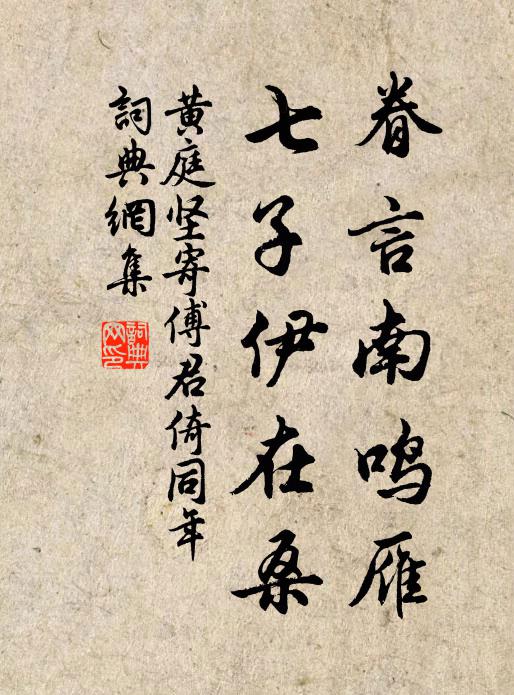 眷言南鸣雁
七子伊在桑
黄庭坚寄傅君倚同年
詞典網集
詞典網印